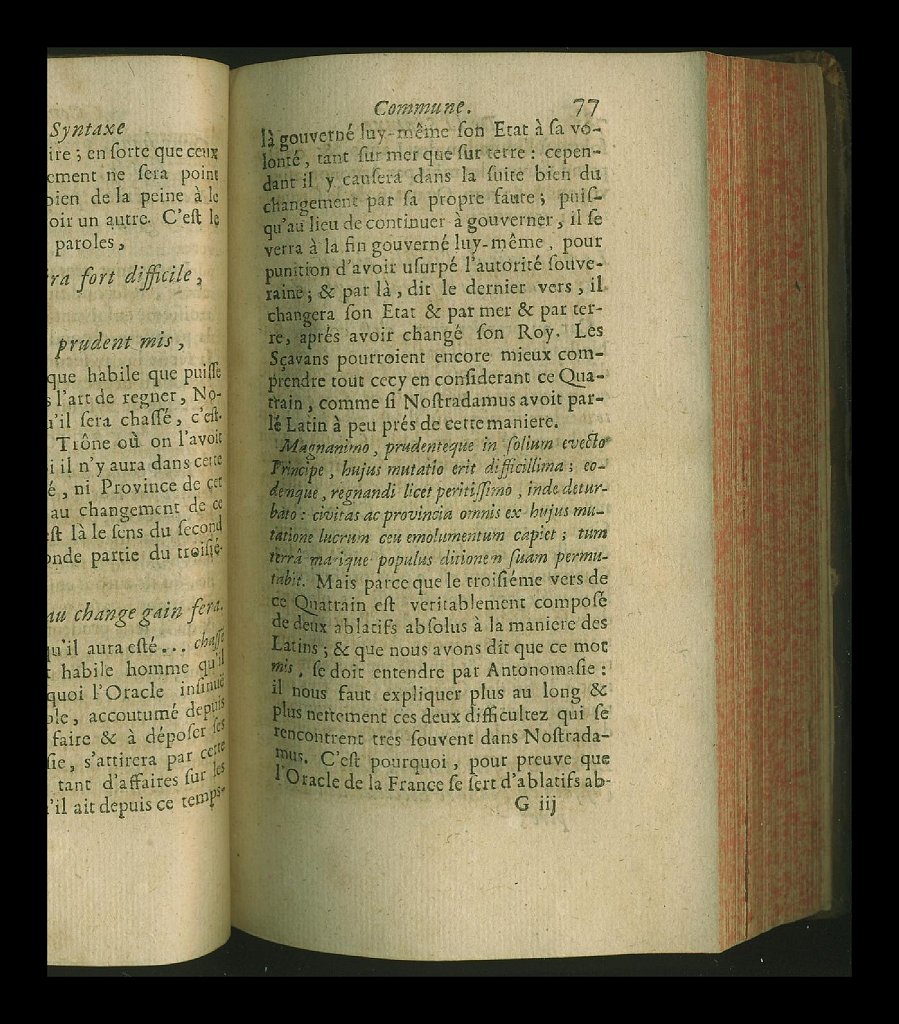 Syntaxe
ire ; en sorte que ceux
ement ne sera point
bien de la peine à le
oir un autre. C'est le
paroles,
ra fort difficile,
prudent mis,
que habile que puisse
s l'art de regner, No-
u'il sera chassé, c'est-
Trône où on l'avoit
i il n'y aura dans cette
é, ni Province de cet
au changement de ce
st là le sens du second
onde partie du troisié-
au change gain fera.
qu'il aura esté... chassé
t habile homme qu'il
quoi l'Oracle insinuë
ple, accoutumé depuis
faire & à déposer ses
sie, s'attirera par cette
tant d'affaires sur les
'il ait depuis ce temps-
Commune. 77
là gouverné luy-même son Etat à sa vo-
lonté, tant sur mer que sur terre : cepen-
dant il y causera dans la suite bien du
changement par sa propre faute ; puis-
qu'au lieu de continuer à gouverner, il se
verra à la fin gouverné luy-même, pour
punition d'avoir usurpé l'autorité souve-
raine ; & par là, dit le dernier vers, il
changera son Etat & par mer & par ter-
re, aprés avoir changé son Roy. Les
Sçavans pourroient encore mieux com-
prendre tout cecy en considerant ce Qua-
train, comme si Nostradamus avoit par-
lé Latin à peu prés de cette maniere.
Magnanimo, prudenteque in solium evecto
Principe, hujus mutatio erit difficillima ; eo-
denque, regnandi licet peritissimo, inde detur-
bato : civitas ac provincia omnis ex hujus mu-
tatione lucrum ceu emolumentum capiet ; tum
terrâ marique populus ditionem suam permu-
tabit. Mais parce que le troisiéme vers de
ce Quatrain est veritablement composé
de deux ablatifs absolus à la maniere des
Latins ; & que nous avons dit que ce mot
mis, se doit entendre par Antonomasie :
il nous faut expliquer plus au long &
plus nettement ces deux difficultez qui se
rencontrent tres souvent dans Nostrada-
mus. C'est pourquoi, pour preuve que
l'Oracle de la France se sert d'ablatifs ab-
G iij